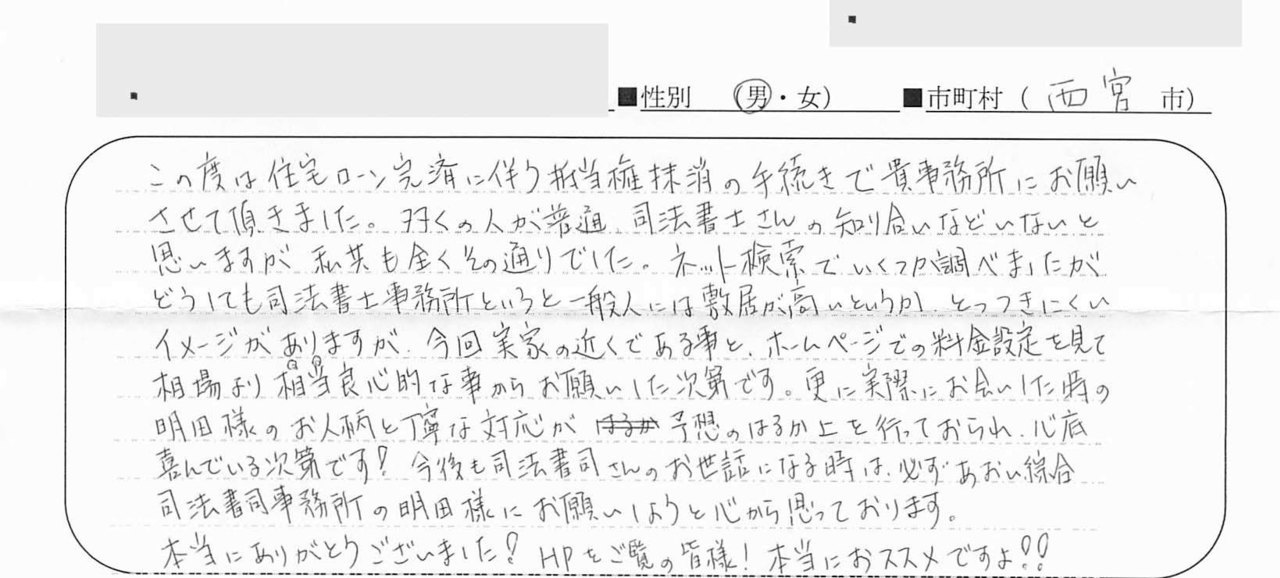 ■性別 (男・女) ■市町村 (西宮 市)
この度は住宅ローン完済に伴う抵当権抹消の手続きで貴事務所にお願い
させて頂きました。多くの人が普通、司法書士さんの知り合いなどいないと
思いますが 私共も全くその通りでした。ネット検索でいくつか調べましたが
どうしても司法書士事務所というと一般人には敷居が高いというか、とっつきにくい
イメージがありますが、今回実家の近くである事と、ホームページでの料金設定を見て
相場より相当良心的な事からお願いした次第です。更に実際にお会いした時の
明田様のお人柄と丁寧な対応が はるか 予想のはるか上を行っておられ、心底
喜んでいる次第です! 今後も司法書司さんのお世話になる時は、必ずあおい綜合
司法書司事務所の明田様にお願いしようと心から思っております。
本当にありがとうございました! HPをご覧の皆様! 本当におススメですよ!!